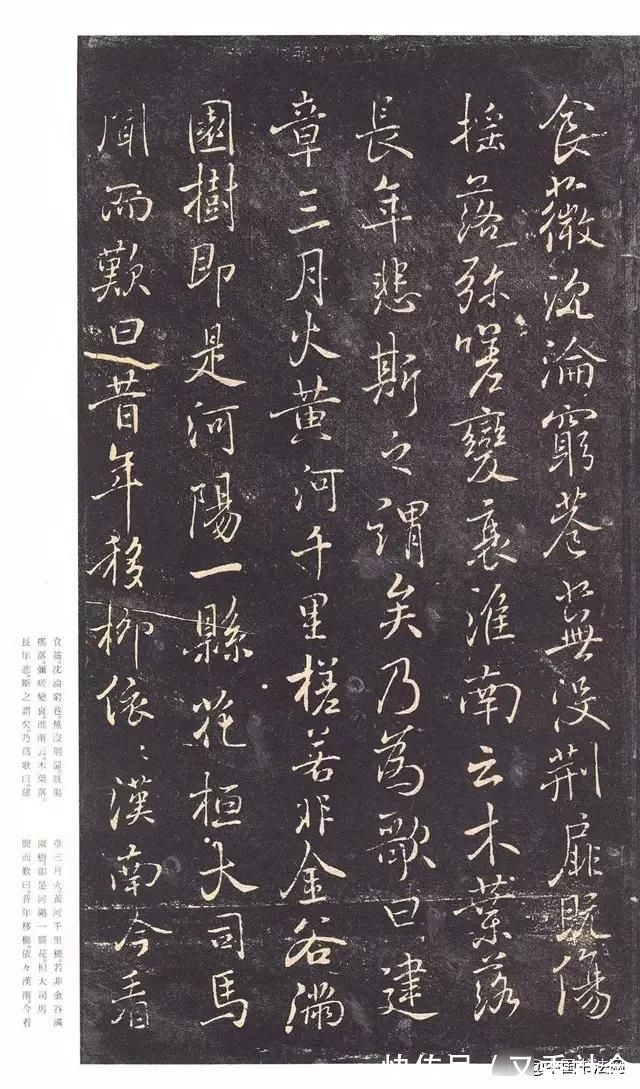 食薇沉淪窮巷蕪没荊扉既傷
摇落弥嗟變衰淮南云木葉落
長年悲斯之謂矣乃為歌曰建
章三月火黃河千里槎若非金谷滿
園樹即是河陽一縣花桓大司馬
聞而歎曰昔年移柳依〻漢南今看
食薇。沈淪窮巷。蕪沒荊扉。既傷
搖落。彌嗟變衰。淮南云。木葉落。
長年悲。斯之謂矣。乃爲歌曰。建
章三月火。黃河千里槎。若非金谷滿
園樹。即是河陽一縣花。桓大司馬
聞而歎曰。昔年移柳。依々漢南。今看
快传号 /
@中国书法网